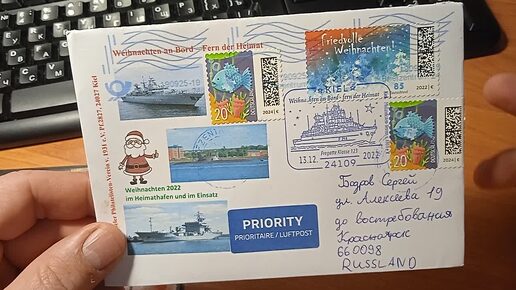 Weihnachten an Bord - Fern der Heimat
Friedvolle
Weihnachten!
85
2022 | €
20
2024 | €
KIEL
Weihnachten im Bord - fern der Heimat
Fregatte Klasse 123
13.12.
2022
24109
20
2024 | €
Weihnachten 2022
im Heimathafen und im Einsatz
PRIORITY
PRIORITAIRE / LUFTPOST
Бодров Сергей
ул. Алексеева 19
до востребования
Красноярск
660098
RUSSLAND